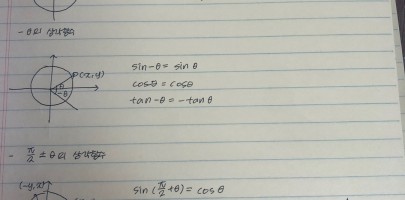 - θ의 삼각함수
P(x,y)
θ
-θ
sin-θ = sin θ
cosθ = cosθ
tan-θ = -tan θ
- π/2 ± θ의 삼각함수
(-y,x)
sin (π/2+θ) = cos θ